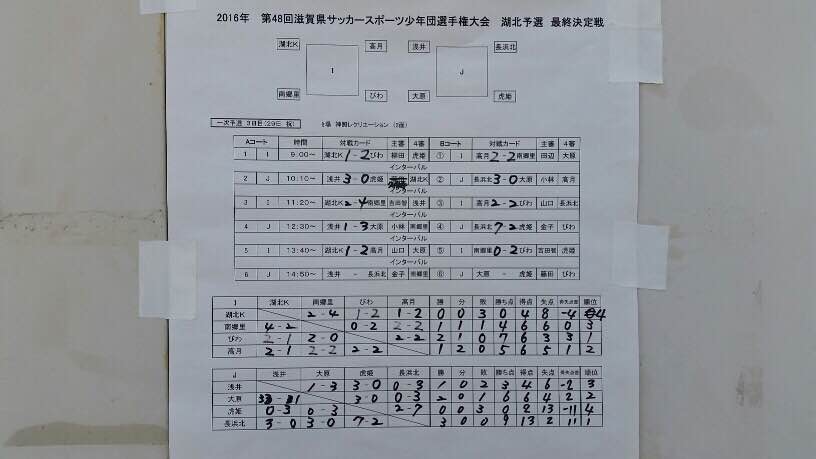 2016年 第48回滋賀県サッカースポーツ少年団選手権大会 湖北予選 最終決定戦
湖北K 高月 浅井 長浜北
I J
南郷里 びわ 大原 虎姫
一次予選 3日目(29日 祝) 会場 神照レクリエーション (2面)
Aコート 時間 対戦カード 主審 4審 Bコート 対戦カード 主審 4審
1 I 9:00～ 湖北K 1-2 びわ 柳田 虎姫 ① I 高月 2-2 南郷里 田辺 大原
インターバル インターバル
2 J 10:10～ 浅井 3-0 虎姫 湖北K ② J 長浜北 3-0 大原 小林 高月
インターバル インターバル
3 I 11:20～ 湖北K 2-4 南郷里 吉田智 浅井 ③ I 高月 2-2 びわ 山口 長浜北
インターバル インターバル
4 J 12:30～ 浅井 1-3 大原 小林 南郷里 ④ J 長浜北 7-2 虎姫 金子 びわ
インターバル インターバル
5 I 13:40～ 湖北K 1-2 高月 山口 大原 ⑤ I 南郷里 0-2 びわ 吉田智 虎姫
インターバル インターバル
6 J 14:50～ 浅井 - 長浜北 金子 南郷里 ⑥ J 大原 - 虎姫 藤田 びわ
I 湖北K 南郷里 びわ 高月 勝 分 敗 勝ち点 得点 失点 得失点差 順位
湖北K 2-4 1-2 1-2 0 0 3 0 4 8 -4 4
南郷里 4-2 0-2 2-2 1 1 1 4 6 6 0 3
びわ 2-1 2-0 2-2 2 1 0 7 6 3 3 1
高月 2-1 2-2 2-2 1 2 0 5 6 5 1 2
J 浅井 大原 虎姫 長浜北 勝 分 敗 勝ち点 得点 失点 得失点差 順位
浅井 1-3 3-0 0-3 1 0 2 3 4 6 -2 3
大原 3-1 3-0 0-3 2 0 1 6 6 4 2 2
虎姫 0-3 0-3 2-7 0 0 3 0 2 13 -11 4
長浜北 3-0 3-0 7-2 3 0 0 9 13 2 11 1